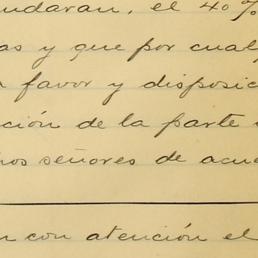 udaran, el 40%
as y que por cual
favor y disposic
ción de la parte
nos señores de acue
con atención el